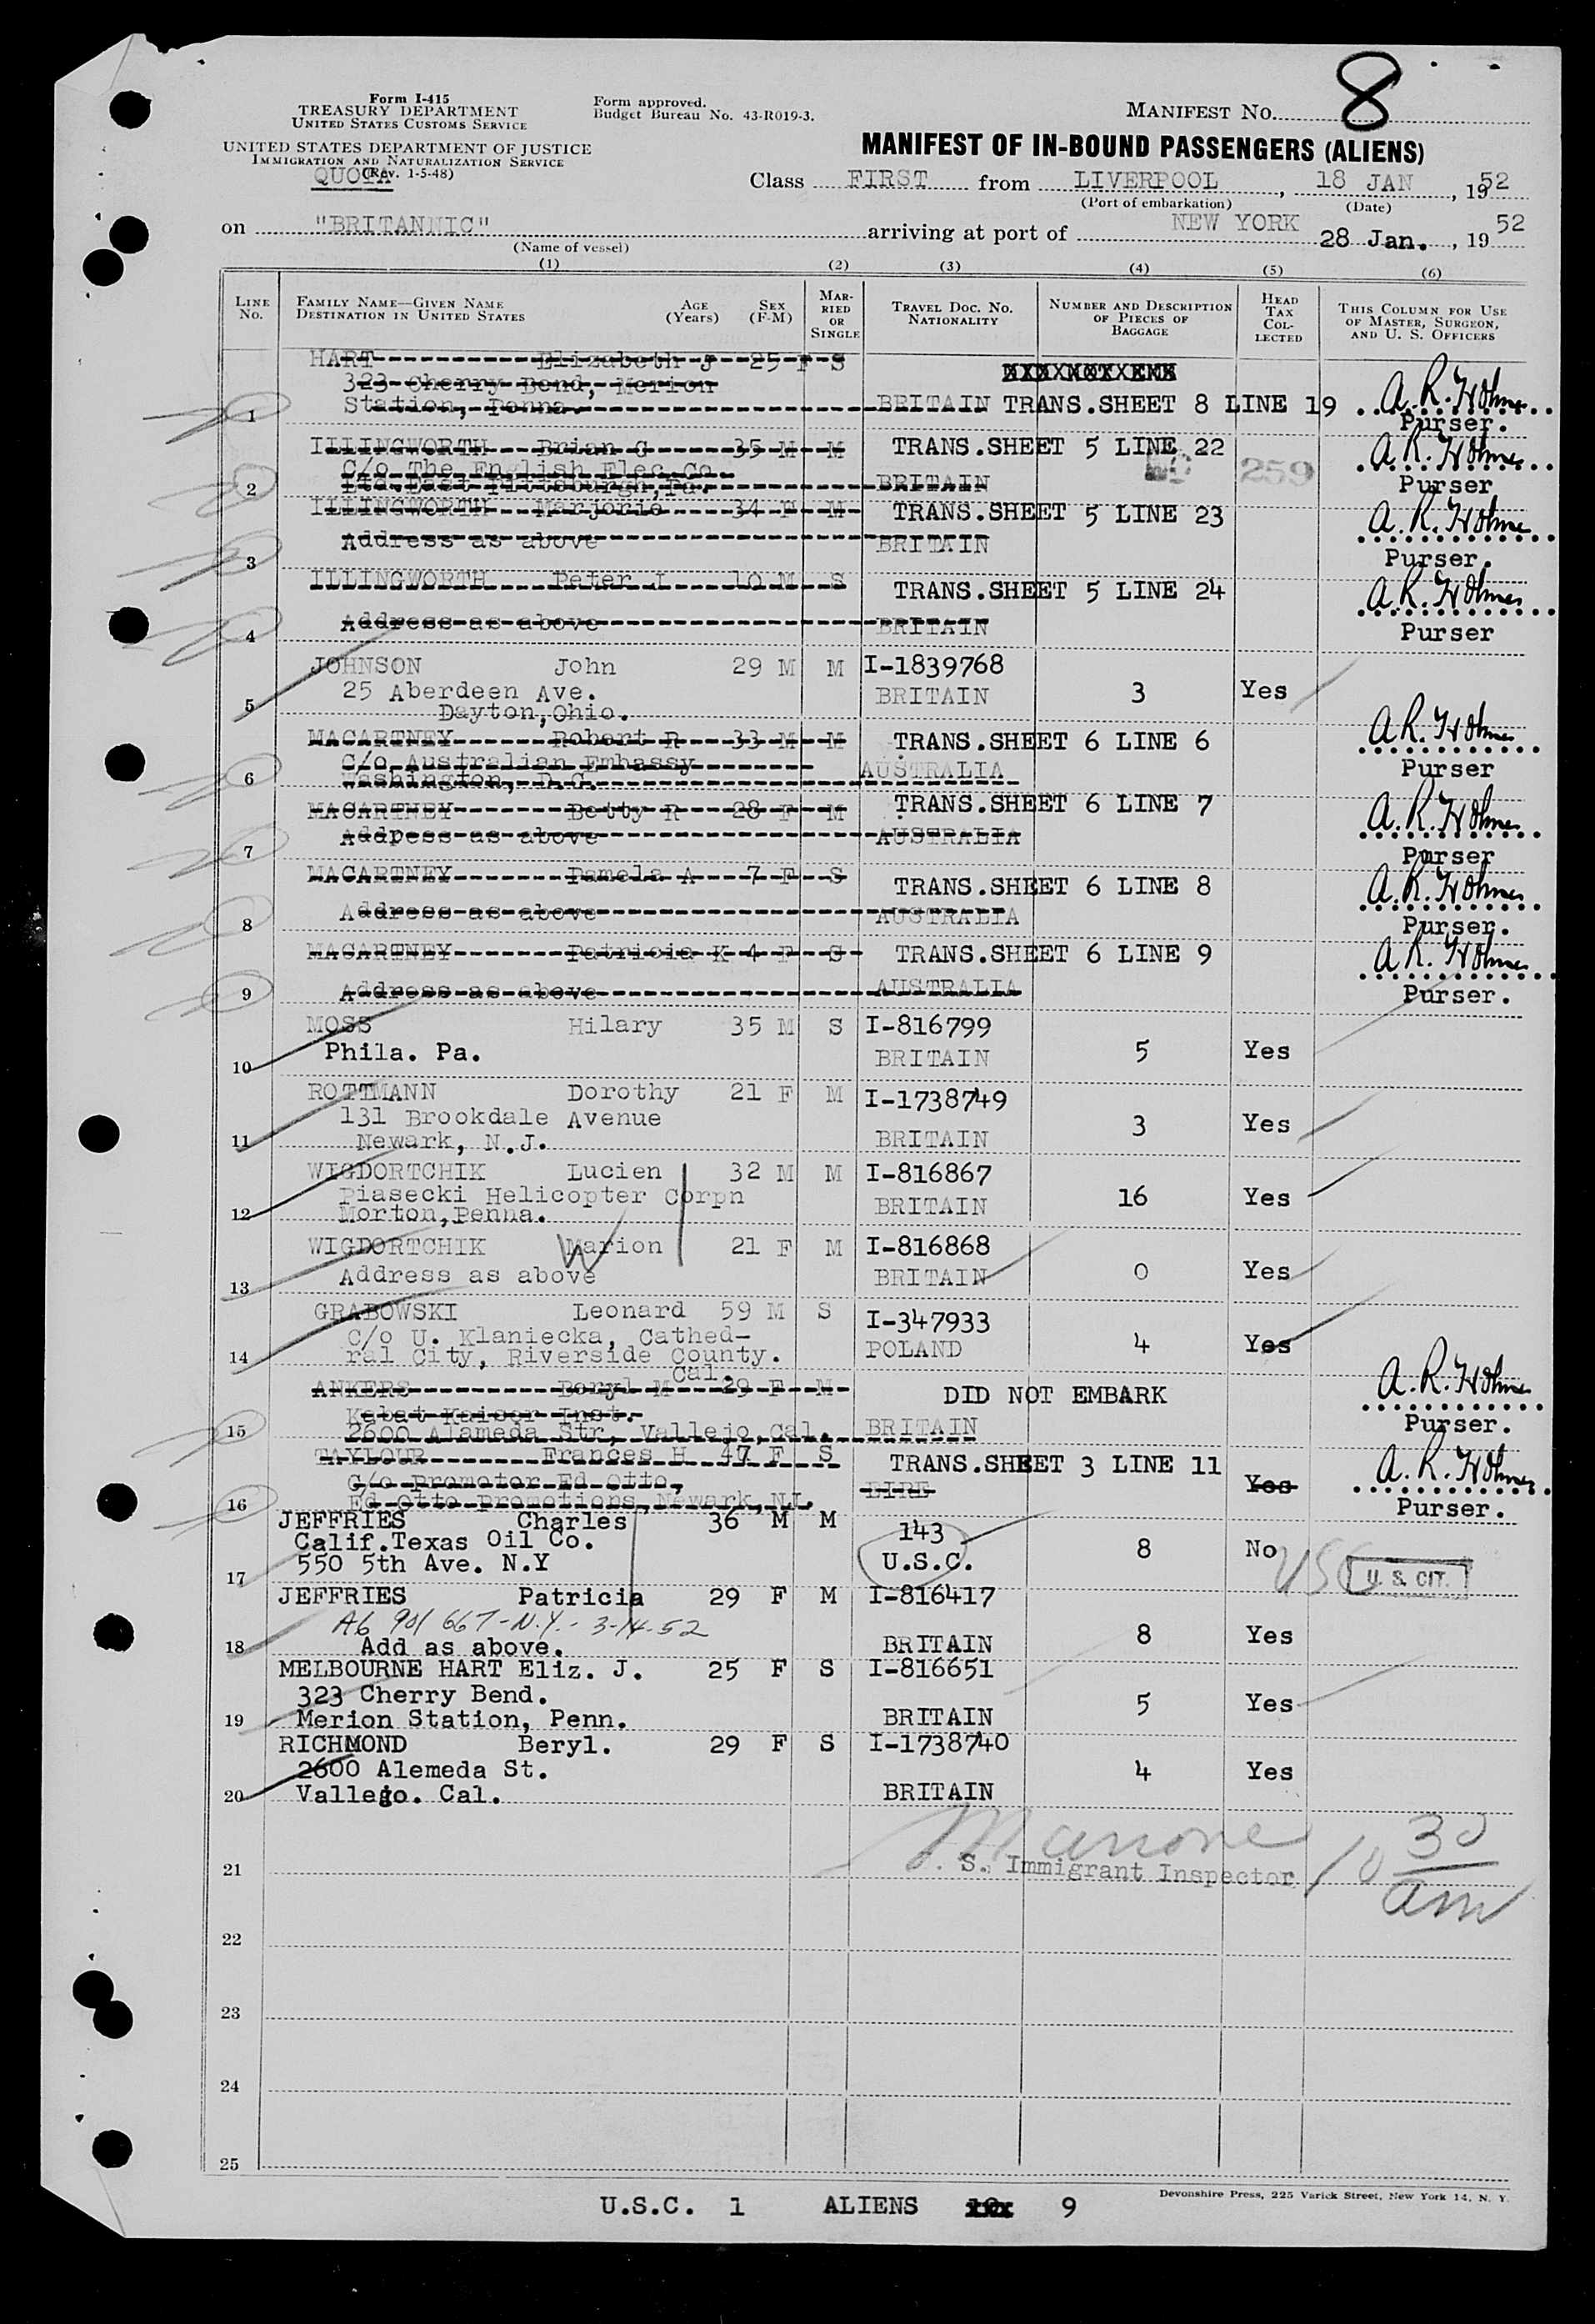 8
Form I-415
TREASURY DEPARTMENT
UNITED STATES CUSTOMS SERVICE
Form approved.
Budget Bureau No. 43-R019-3.
MANIFEST NO.
UNITED STATES DEPARTMENT OF JUSTICE
IMMIGRATION AND NATURALIZATION SERVICE
(Rev. 1-5-48)
QUOTA
MANIFEST OF IN-BOUND PASSENGERS (ALIENS)
Class FIRST from LIVERPOOL, 18 JAN, 1952
(Port of embarkation) (Date)
on "BRITANNIC" arriving at port of NEW YORK 28 Jan., 19 52
(Name of vessel)
(1) (2) (3) (4) (5) (6)
LINE NO. FAMILY NAME—GIVEN NAME DESTINATION IN UNITED STATES AGE (Years) SEX (F-M) MARRIED OR SINGLE TRAVEL DOC. NO. NATIONALITY NUMBER AND DESCRIPTION OF PIECES OF BAGGAGE HEAD TAX COLLECTED THIS COLUMN FOR USE OF MASTER, SURGEON, AND U. S. OFFICERS
HART Elizabeth J 25 F S
323 Cherry Bend, Merion
1 Station, Penna. BRITAIN TRANS.SHEET 8 LINE 19 A.R. Holmes
Purser.
ILLINGWORTH Brian G 35 M M TRANS.SHEET 5 LINE 22 A.R. Holmes
C/o The English Elec.Co. 259
2 Ltd.East Pittsburgh,Pa. BRITAIN Purser
ILLINGWORTH Marjorie 34 F M TRANS.SHEET 5 LINE 23 A.R. Holmes
3 Address as above BRITAIN Purser.
ILLINGWORTH Peter I 10 M S TRANS.SHEET 5 LINE 24 A.R. Holmes
4 Address as above BRITAIN Purser
JOHNSON John 29 M M I-1839768
25 Aberdeen Ave. BRITAIN 3 Yes
5 Dayton,Ohio.
MACARTNEY Robert R 33 M M TRANS.SHEET 6 LINE 6 A.R. Holmes
C/o Australian Embassy AUSTRALIA Purser
6 Washington, D.C.
MACARTNEY Betty R 28 F M TRANS.SHEET 6 LINE 7 A.R. Holmes
7 Address as above AUSTRALIA Purser
MACARTNEY Pamela A 7 F S TRANS.SHEET 6 LINE 8 A.R. Holmes
8 Address as above AUSTRALIA Purser.
MACARTNEY Patricia K 4 F S TRANS.SHEET 6 LINE 9 A.R. Holmes
9 Address as above AUSTRALIA Purser.
MOSS Hilary 35 M S I-816799
10 Phila. Pa. BRITAIN 5 Yes
ROTTMANN Dorothy 21 F M I-1738749
131 Brookdale Avenue 3 Yes
11 Newark, N.J. BRITAIN
WIGDORTCHIK Lucien 32 M M I-816867
Piasecki Helicopter Corpn BRITAIN 16 Yes
12 Morton,Penna.
WIGDORTCHIK Marion 21 F M I-816868
13 Address as above BRITAIN 0 Yes
GRABOWSKI Leonard 59 M S I-347933
C/o U. Klaniecka, Cathed-
14 ral City, Riverside County. POLAND 4 Yes
Cal.
ANKERS Beryl M 29 F M DID NOT EMBARK A.R. Holmes
Kabat Kaiser Inst.
15 2600 Alameda Str, Vallejo,Cal. BRITAIN Purser.
TAYLOUR Frances H 47 F S TRANS.SHEET 3 LINE 11 A.R. Holmes
C/o Promotor Ed Otto, EIRE Yes
16 Ed Otto promotions,Newark,NJ. Purser.
JEFFRIES Charles 36 M M 143
Calif.Texas Oil Co. 8 No
17 550 5th Ave. N.Y U.S.C. USC U. S. CIT.
JEFFRIES Patricia 29 F M I-816417
A6 901 667-N.Y.- 3-14-52
18 Add as above. BRITAIN 8 Yes
MELBOURNE HART Eliz. J. 25 F S I-816651
323 Cherry Bend. 5 Yes
19 Merion Station, Penn. BRITAIN
RICHMOND Beryl. 29 F S I-1738740
2600 Alemeda St. 4 Yes
20 Vallejo. Cal. BRITAIN
Marrone
21 S. Immigrant Inspector 10 30 am
22
23
24
25
Devonshire Press, 225 Varick Street, New York 14, N. Y.
U.S.C. 1 ALIENS 9